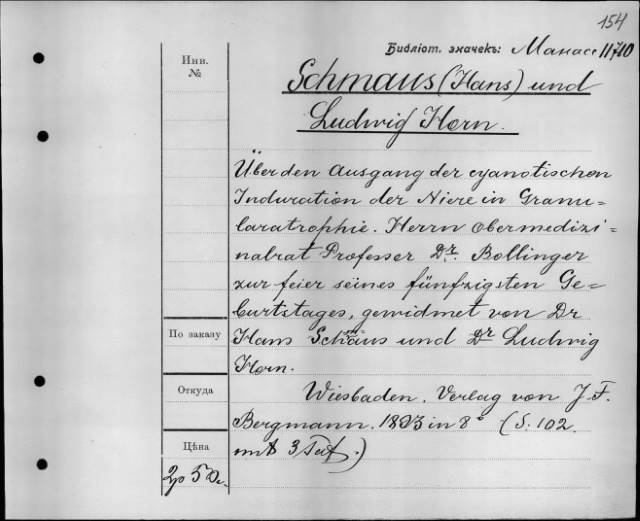 154
Библіот. значекъ: Манасс 11710
Инв.
№
Schmaus (Hans) und
Ludwig Horn.
Über den Ausgang der cyanotischen
Induration der Niere in Granu-
laratrophie. Herrn Obermedizi-
nalrat Professer Dr. Bollinger
zur feier seines fünfzigsten Ge-
burtstages, gewidmet von Dr
Hans Schmaus und Dr Ludwig
Horn.
По заказу
Откуда
Wiesbaden. Verlag von J. F.
Bergmann. 1893 in 8° (S. 102.
mit 3 Taf.)
Цѣна
2р 50к.